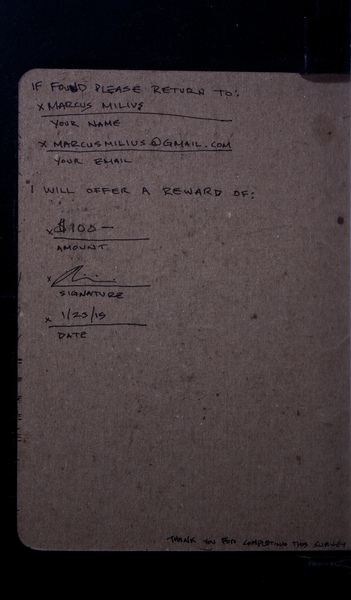 IF FOUND PLEASE RETURN TO:
x MARCUS MILIUS
YOUR NAME
x MARCUSMILIUS@GMAIL.COM
YOUR EMAIL
I WILL OFFER A REWARD OF:
x $100—
AMOUNT
x
SIGNATURE
x 1/23/15
DATE
THANK YOU FOR COMPLETING THIS SURVEY